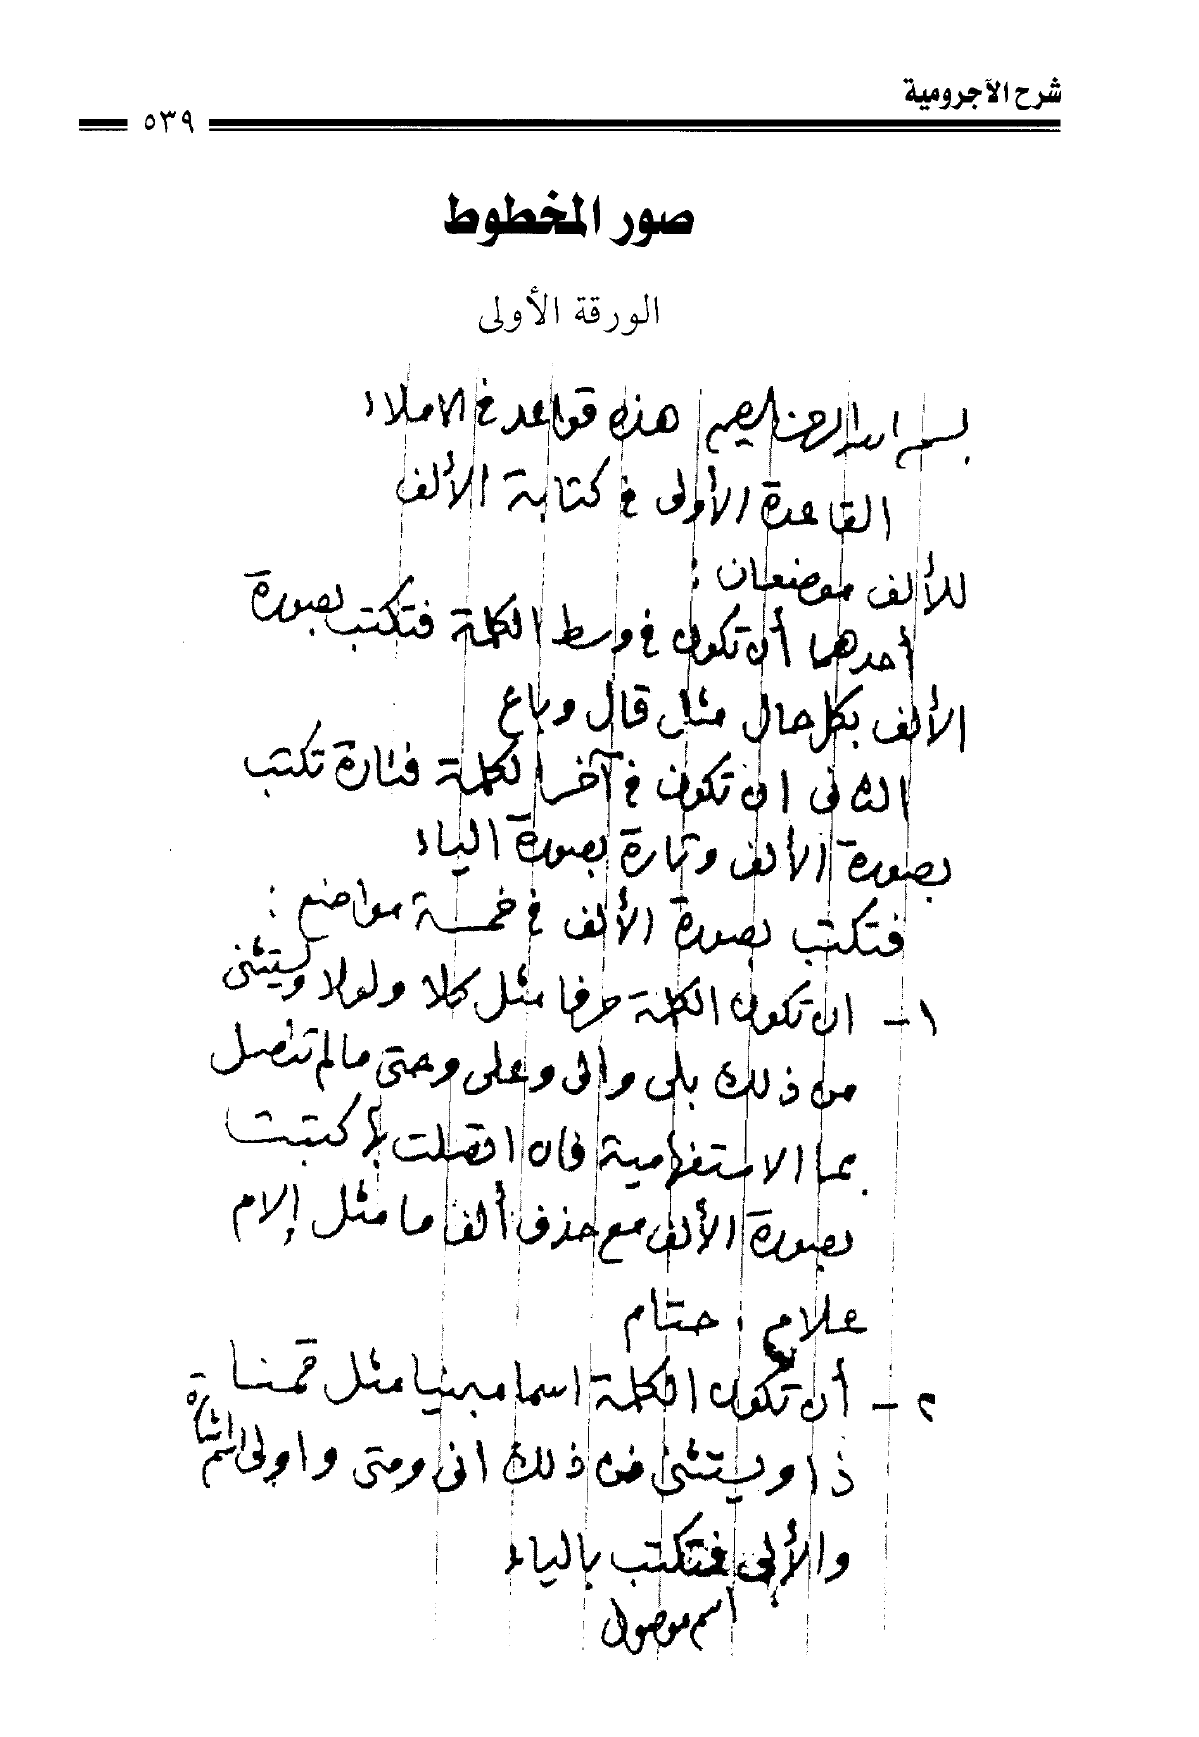 شرح الآجرومية
٥٣٩
صور المخطوط
الورقة الأولى
بسم الله الرحمن الرحيم هذه قواعد في الاملاء
القاعدة الأولى في كتابة الألف
للألف موضعان :
أحدهما أن تكون في وسط الكلمة فتكتب بصورة
الألف بكل حال مثل قال وباع
الثاني ان تكون في آخر الكلمة فتارة تكتب
بصورة الألف وتارة بصورة الياء
فتكتب بصورة الألف في خمسة مواضع :
١ - ان تكون الكلمة حرفا مثل كلا ولولا ويستثنى
من ذلك بلى والى وعلى وحتى مالم تتصل
بما الاستفهامية فان اتصلت بها كتبت
بصورة الألف مع حذف ألف ما مثل إلام
علام ، حتام
٢ - أن تكون الكلمة اسما مبنيا مثل قمنا
ذا ويستثنى من ذلك انى ومتى واولى اسم اشارة
والألى فتكتب بالياء
اسم موصول